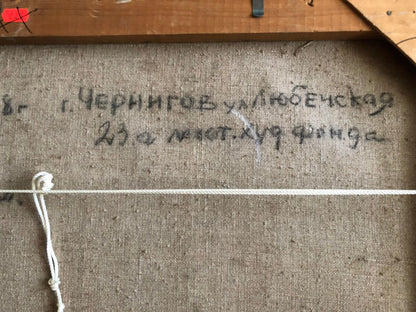 8г г. ЧЕРНИГОВ ул Любечская
23а маст. худ фонда